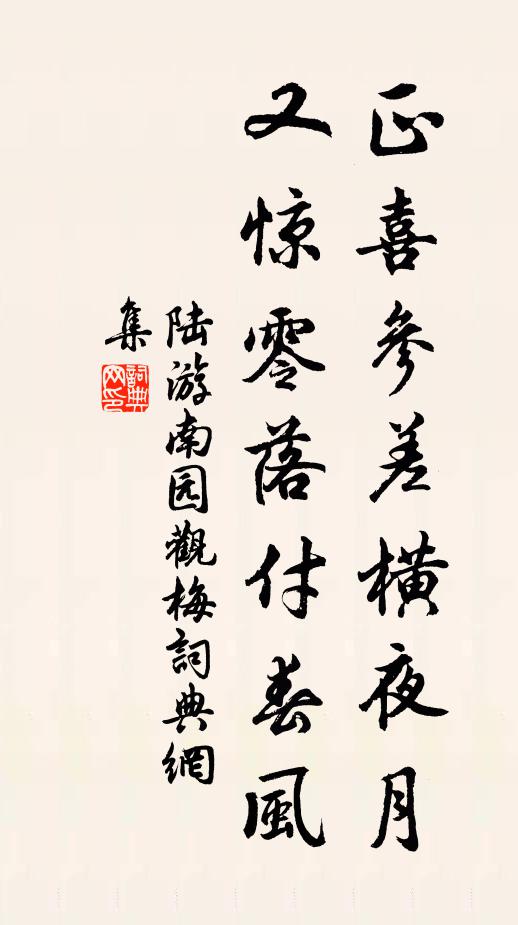 正喜參差橫夜月
又惊零落付春風
陆游南园觀梅詞典網
集
詞典
网印